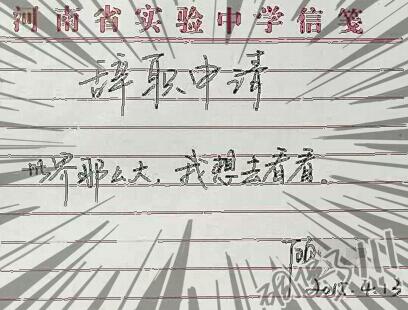 河南省实验中学信笺
辞职申请
世界那么大,我想去看看。
2015.4.13